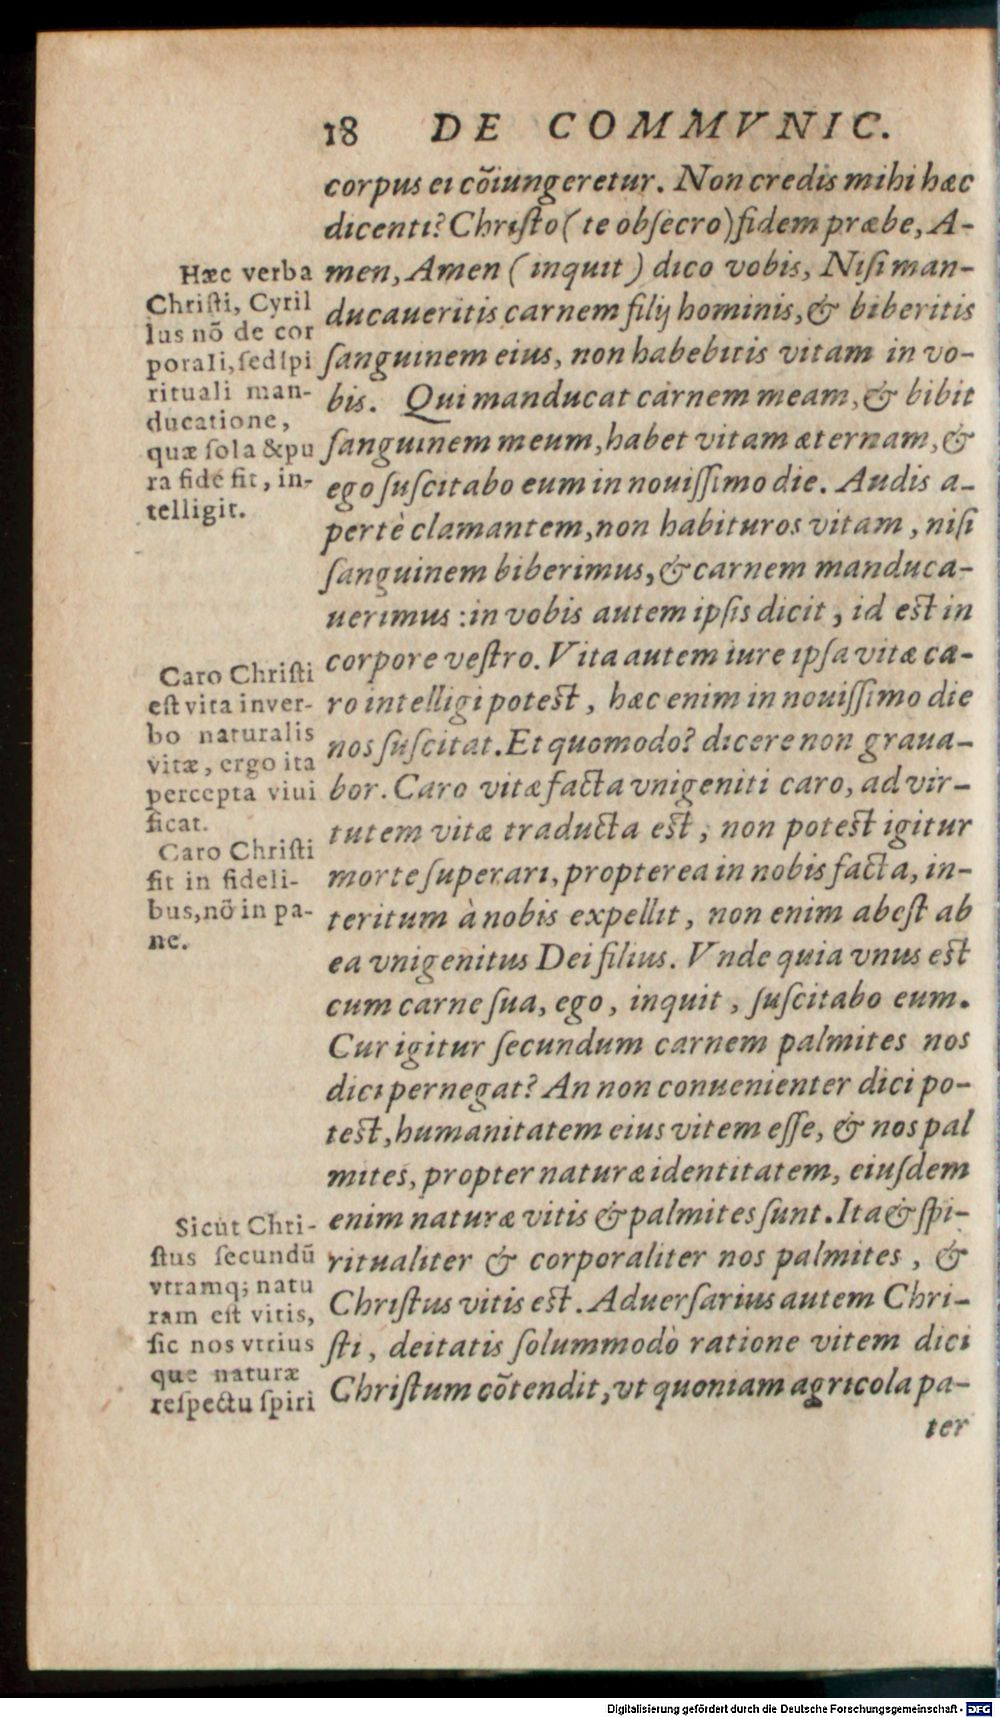 18 DE COMMVNIC.
corpus ei cõiungeretur. Non credis mihi hæc
dicenti? Chriſto (te obſecro) fidem præbe, A-
men, Amen (inquit) dico vobis, Niſi man-
ducaueritis carnem filij hominis, & biberitis
ſanguinem eius, non habebitis vitam in vo-
bis. Qui manducat carnem meam, & bibit
ſanguinem meum, habet vitam æternam, &
ego ſuſcitabo eum in nouiſſimo die. Audis a-
pertè clamantem, non habituros vitam, niſi
ſanguinem biberimus, & carnem manduca-
uerimus: in vobis autem ipſis dicit, id eſt in
corpore veſtro. Vita autem iure ipſa vitæ ca-
ro intelligi poteſt, hæc enim in nouiſſimo die
nos ſuſcitat. Et quomodo? dicere non graua-
bor. Caro vitæ facta vnigeniti caro, ad vir-
tutem vitæ traducta eſt, non poteſt igitur
morte ſuperari, propterea in nobis facta, in-
teritum à nobis expellit, non enim abeſt ab
ea vnigenitus Dei filius. Vnde quia vnus eſt
cum carne ſua, ego, inquit, ſuſcitabo eum.
Cur igitur ſecundum carnem palmites nos
dici pernegat? An non conuenienter dici po-
teſt, humanitatem eius vitem eſſe, & nos pal
mites, propter naturæ identitatem, eiuſdem
enim naturæ vitis & palmites ſunt. Ita & ſpi-
ritualiter & corporaliter nos palmites, &
Chriſtus vitis eſt. Aduerſarius autem Chri-
ſti, deitatis ſolummodò ratione vitem dici
Chriſtum cõtendit, vt quoniam agricola pa-
ter
Hæc verba
Chriſti, Cyril
lus nõ de cor
porali, ſed ſpi
rituali man-
ducatione,
quæ ſola & pu
ra fide fit, in-
telligit.
Caro Chriſti
eſt vita in ver-
bo naturalis
vitæ, ergo ita
percepta viui
ficat.
Caro Chriſti
fit in fideli-
bus, nõ in pa-
ne.
Sicut Chri-
ſtus ſecundũ
vtramq; natu
ram eſt vitis,
ſic nos vtrius
que naturæ
reſpectu ſpiri
Digitalisierung gefördert durch die Deutsche Forschungsgemeinschaft - DFG